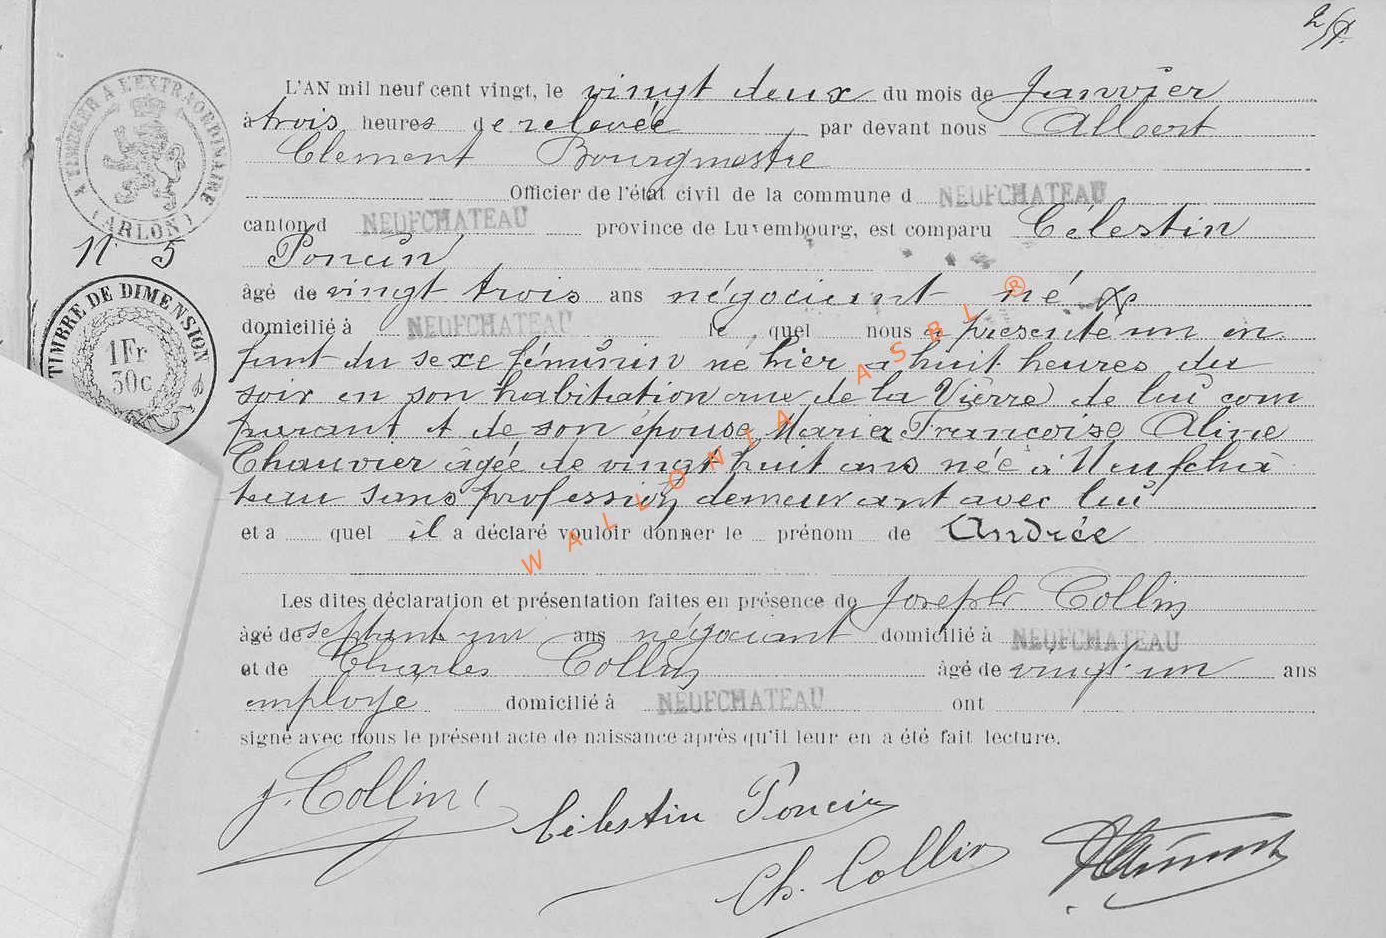 2/f.
A TIMBRER A L'EXTRAORDINAIRE
(ARLON)
L'AN mil neuf cent vingt, le vingt deux du mois de Janvier
à trois heures de relevée par devant nous Albert
Clement Bourgmestre
Officier de l'état civil de la commune d NEUFCHATEAU
canton d NEUFCHATEAU province de Luxembourg, est comparu Célestin
N 5
Poncin
TIMBRE DE DIMENSION
1 Fr
30c
âgé de vingt trois ans négociant né
domicilié à NEUFCHATEAU le quel nous a présenté un en
fant du sexe féminin né hier à huit heures du
soir en son habitation rue de la Vierre de lui com
parant et de son épouse Maria Françoise Aline
Chauvier agée de vingt huit ans née à Neufchâ
teau sans profession demeurant avec lui
et a quel il a déclaré vouloir donner le prénom de Andrée
WALLONIA ASBL ®
Les dites déclaration et présentation faites en présence de Joseph Collin
âgé de septante un ans négociant domicilié à NEUFCHATEAU
et de Charles Collin âgé de vingt-un ans
employe domicilié à NEUFCHATEAU ont
signé avec nous le présent acte de naissance après qu'il leur en a été fait lecture.
J. Collin
Célestin Poncin
Ch. Collin